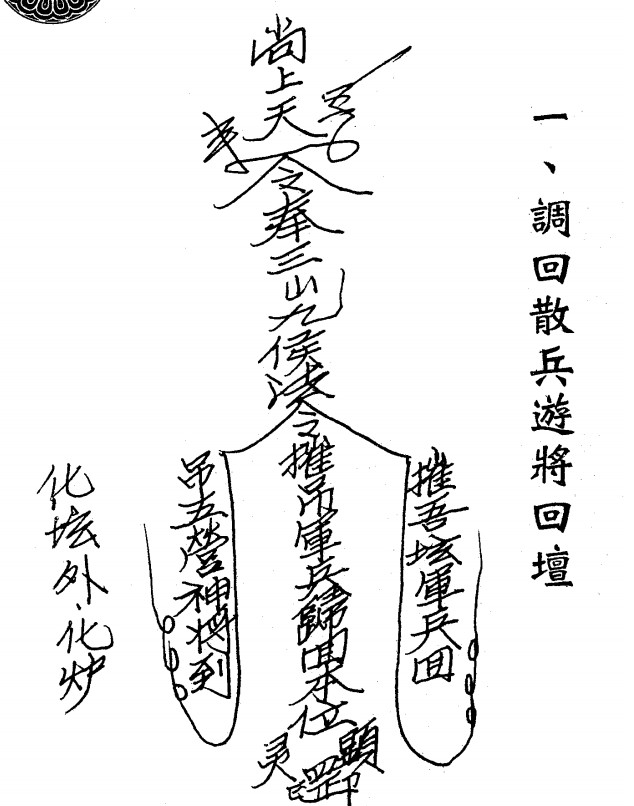 一、調回散兵遊將回壇
尚上天令奉三山九侯法令摧吊軍兵歸回本位
摧吾坛軍兵回
吊五營神将到
顯
灵
罡印
化坛外、化炉